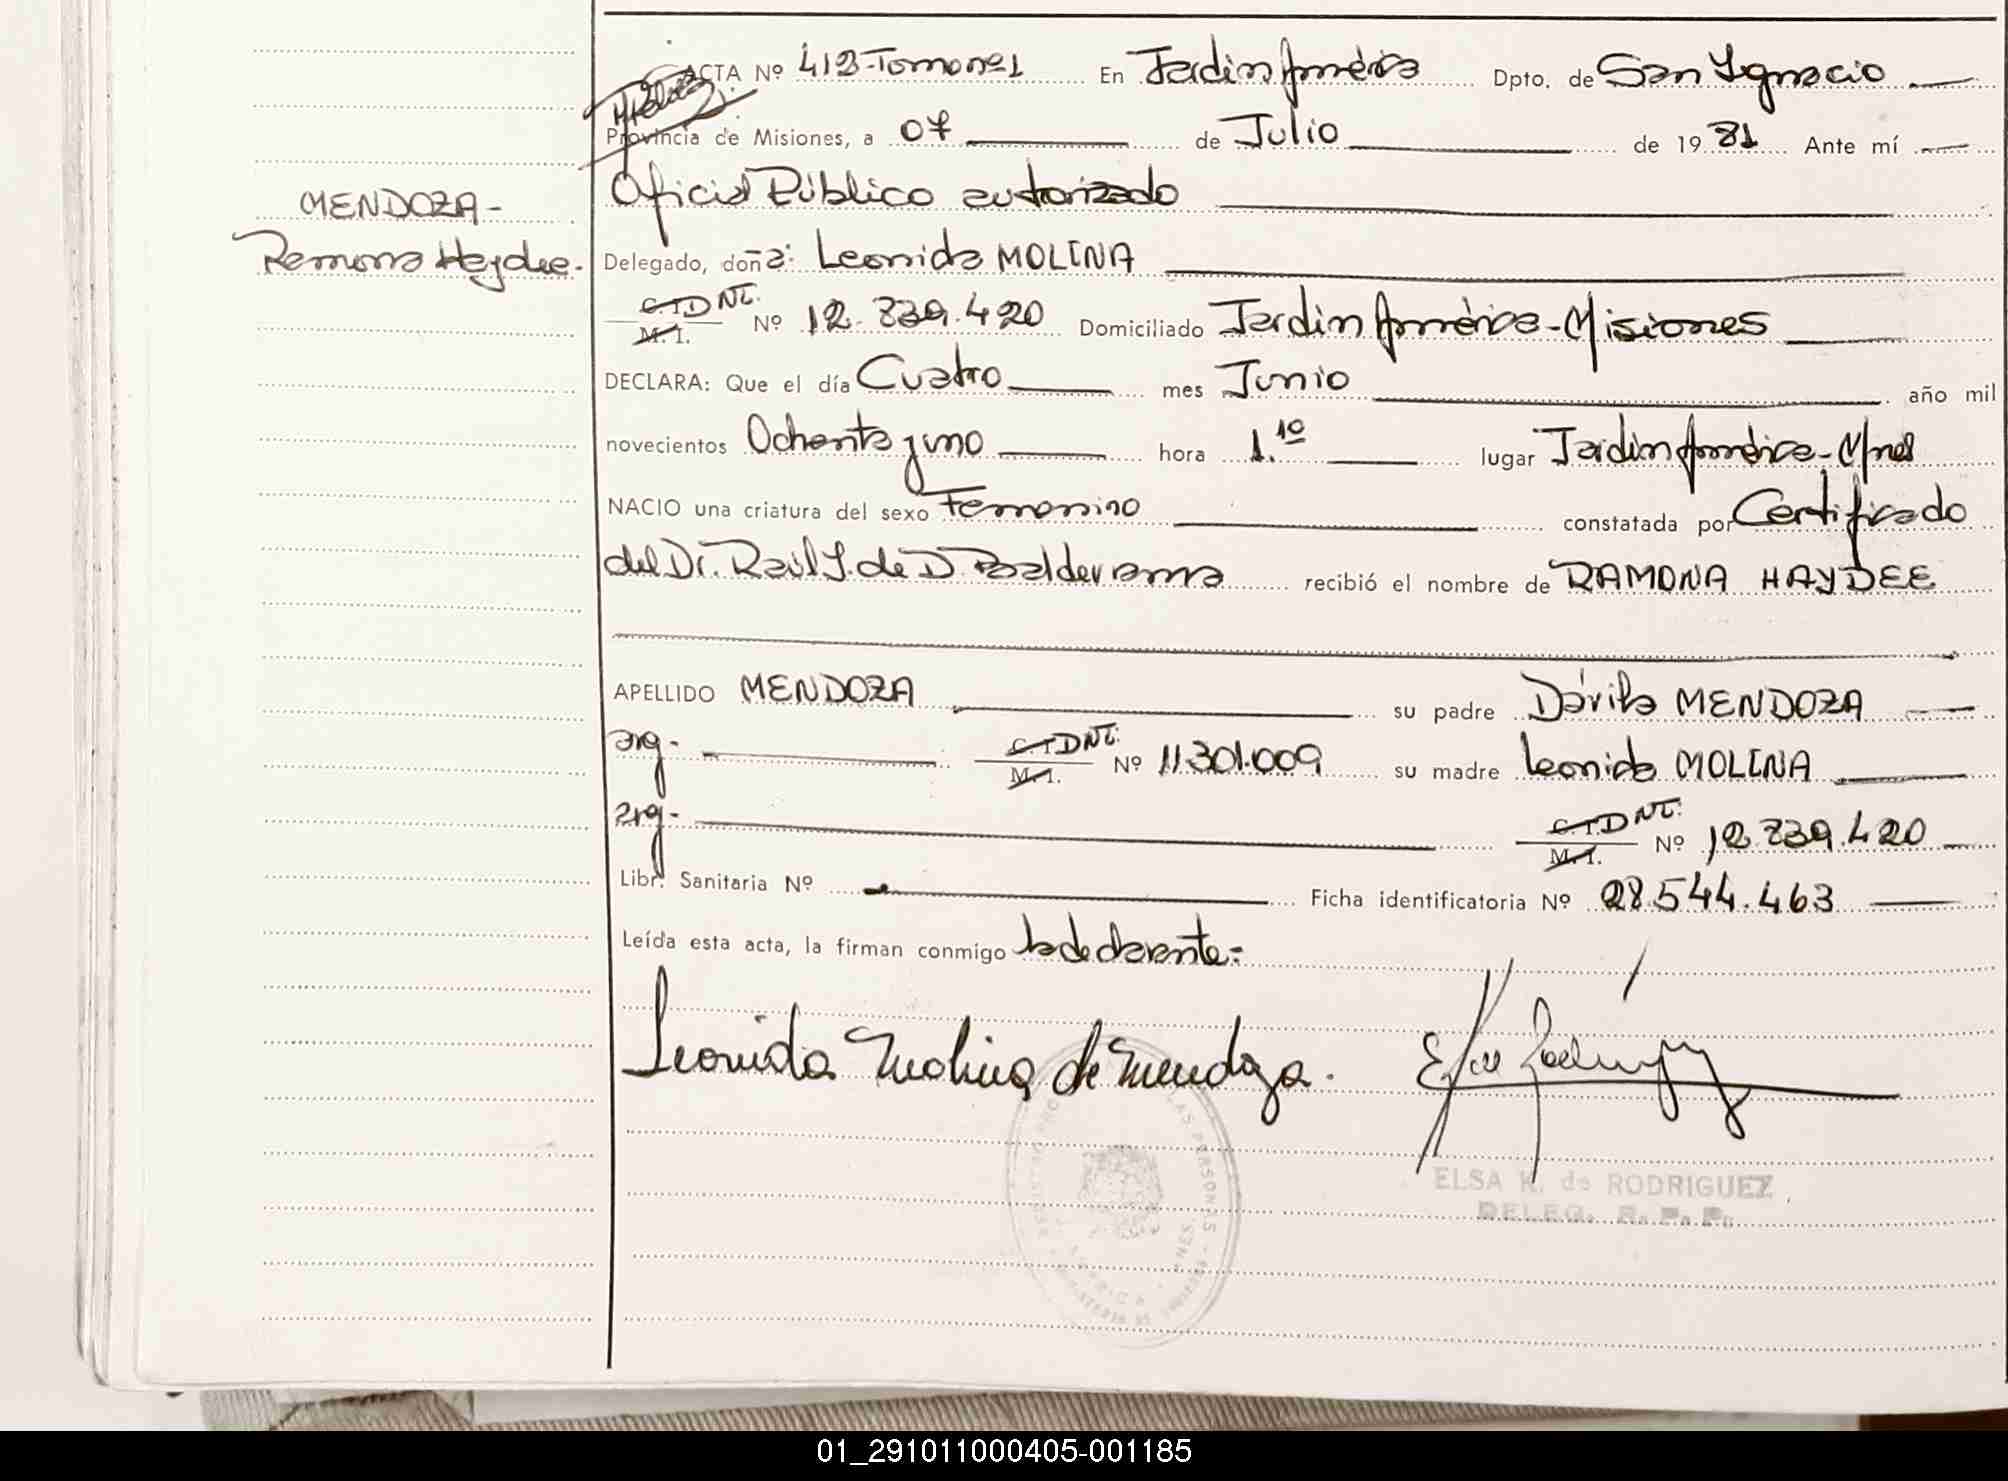 ACTA Nº 413-Tomo nº1 En Jardin América Dpto. de San Ignacio
Provincia de Misiones, a 07 de Julio de 1981 Ante mí
Oficial Público autorizado
MENDOZA-
Ramona Haydee.
Delegado, doña: Leonida MOLINA
C.I. DNI. M.I. Nº 12.839.420 Domiciliado Jardin América-Misiones
DECLARA: Que el día Cuatro mes Junio año mil
novecientos Ochenta y uno hora 1.10 lugar Jardin América-Mnes
NACIO una criatura del sexo Femenino constatada por Certificado
del Dr. Raúl J. de D. Balderrama recibió el nombre de RAMONA HAYDEE
APELLIDO MENDOZA su padre Dávila MENDOZA
arg- C.I. DNI. M.I. Nº 11.301.009 su madre Leonida MOLINA
arg- C.I. DNI. M.I. Nº 12.839.420
Libr. Sanitaria Nº Ficha identificatoria Nº 28.544.463
Leída esta acta, la firman conmigo la declarante=
Leonida Molina de Mendoza.
ELSA K. de RODRIGUEZ
DELEG. R. P. P.
01_291011000405-001185